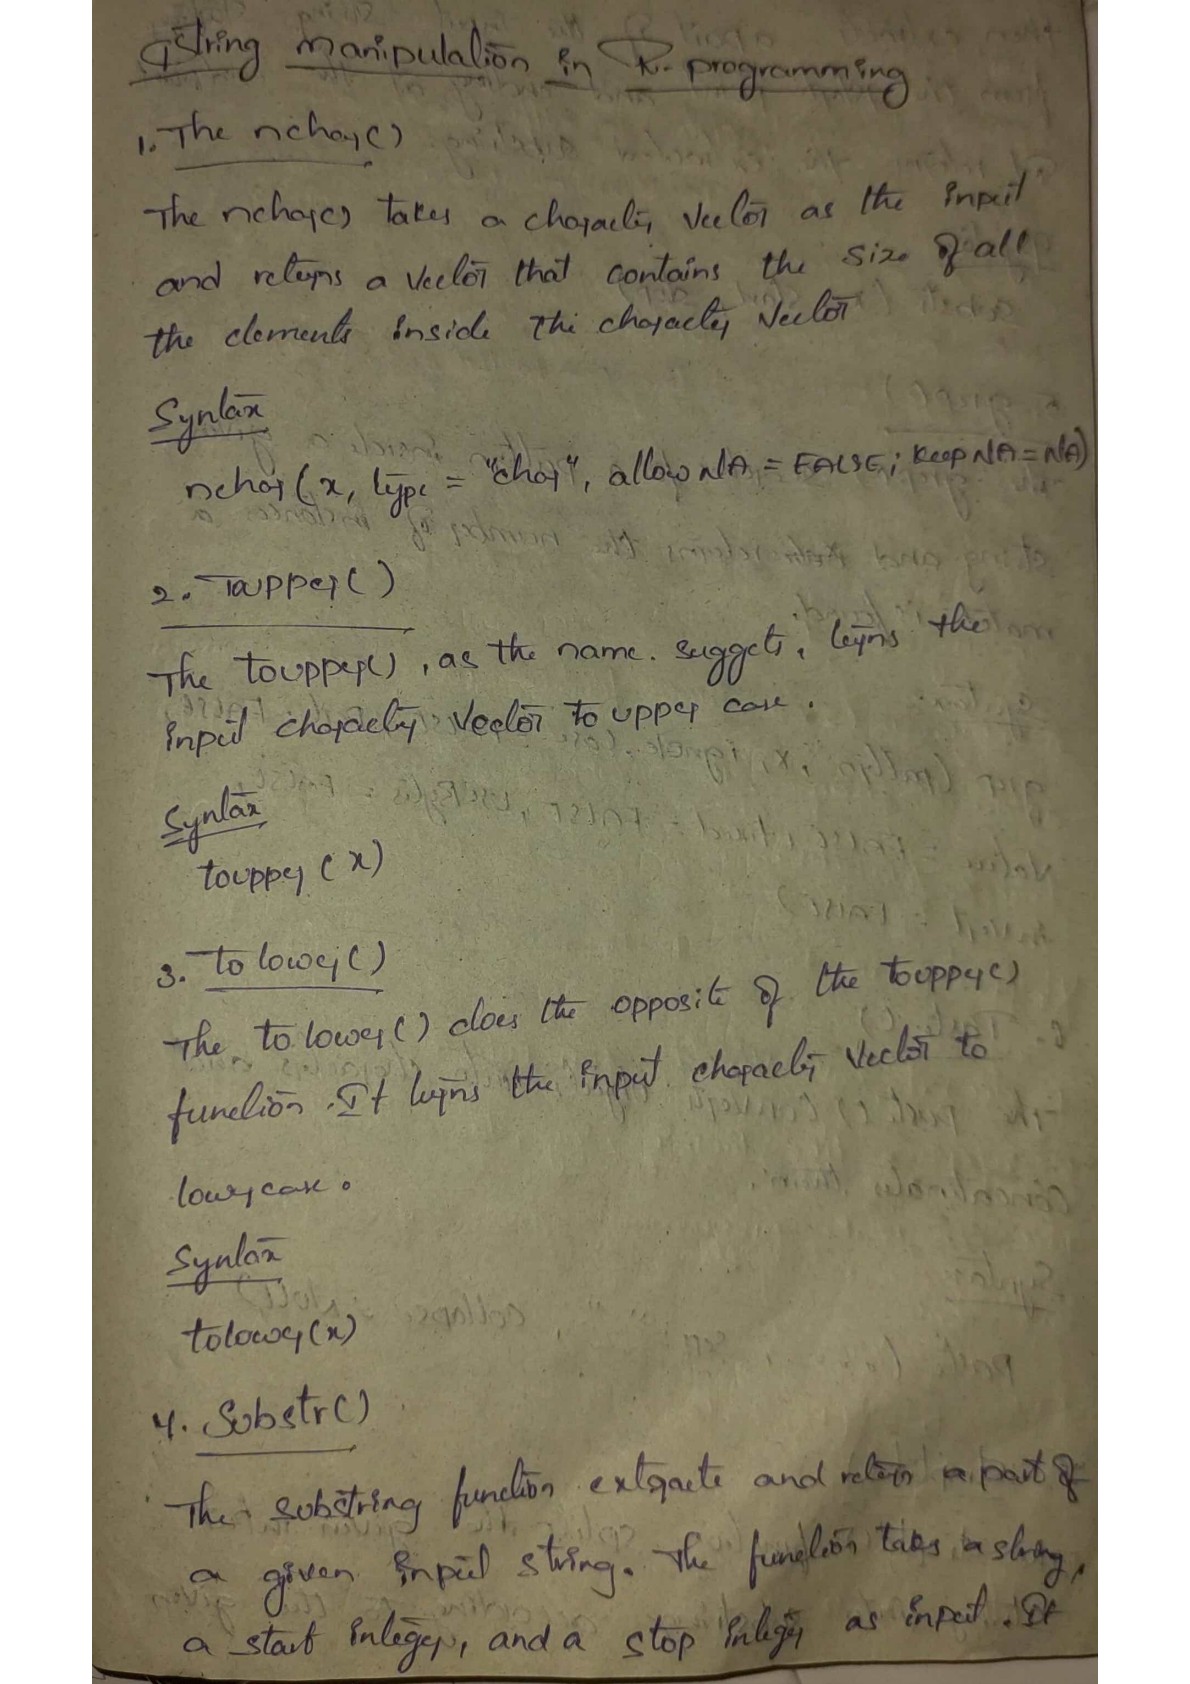 String manipulation in R-programming
1. The nchar()
The nchar() takes a character vector as the input
and returns a vector that contains the size of all
the elements inside the character vector
Syntax
nchar(x, type = "char", allowNA = FALSE, keepNA = NA)
2. Toupper()
The toupper(), as the name. suggets, turns the
input character vector to upper case.
Syntax
toupper (x)
3. To lower()
The to lower() does the opposite of the toupper()
function. It turns the input character vector to
lowercase.
Syntax
tolower(x)
4. Substr()
The substring function extracte and return a part of
a given input string. The function takes a string,
a start integer, and a stop integer as input. It